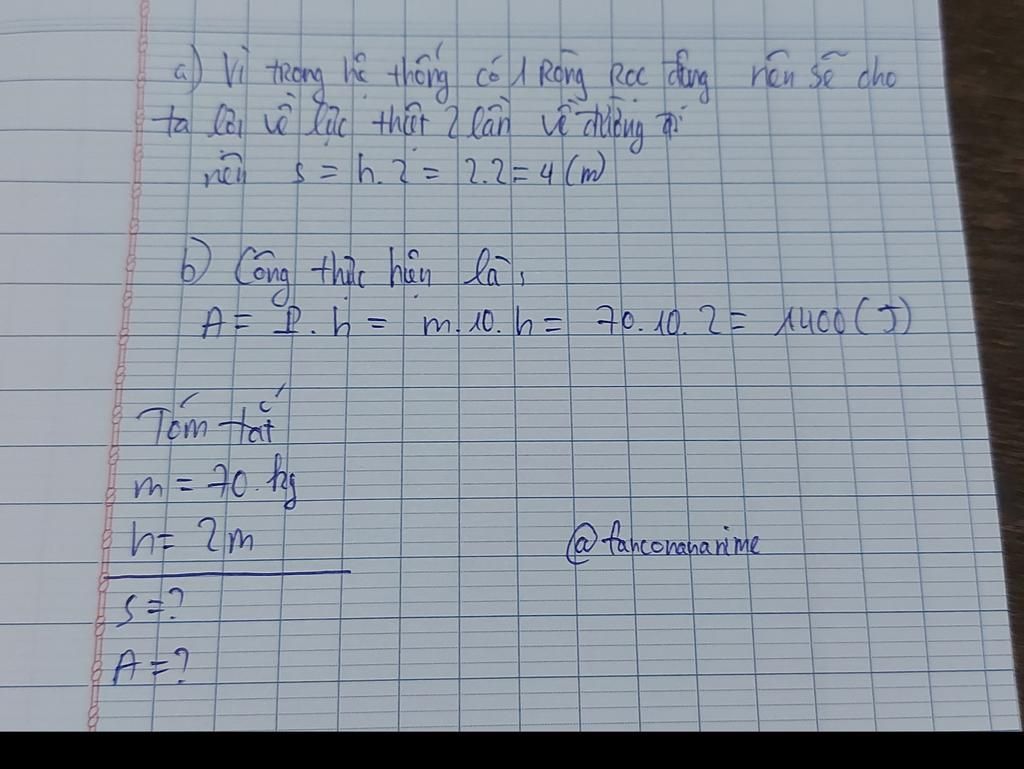 a) Vì trong hệ thống có 1 Ròng Rọc động nên sẽ cho
ta lợi về lực thiệt 2 lần về đường đi
nên s = h.2 = 2.2 = 4 (m)
b) Công thực hiện là:
A = P.h = m.10.h = 70.10.2 = 1400 (J)
Tóm tắt
m = 70 kg
h = 2m
@fanconanarime
s = ?
A = ?